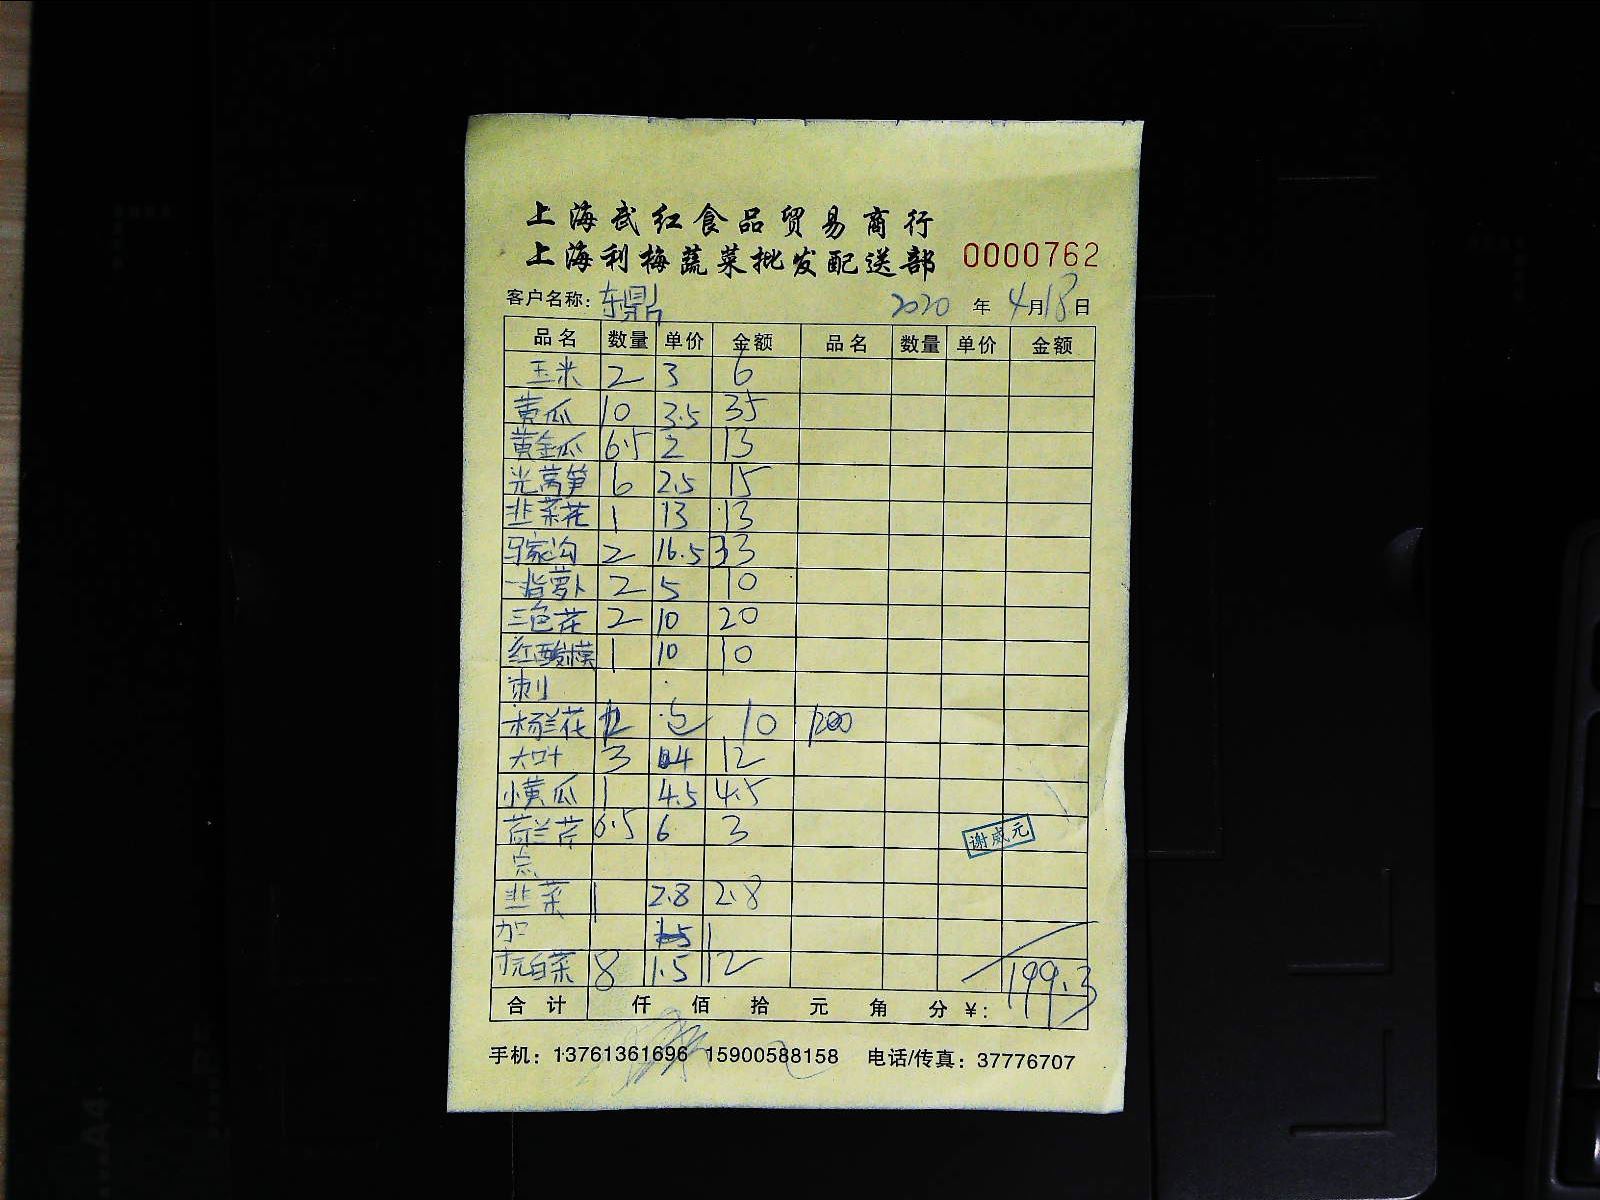 上海武红食品贸易商行
上海利梅蔬菜批发配送部 0000762
客户名称: 东鼎 2020 年 4月18日
品名 数量 单价 金额 品名 数量 单价 金额
玉米 2 3 6
黄瓜 10 3.5 35
黄金瓜 6.5 2 13
光莴笋 6 2.5 15
韭菜花 1 13 13
马家沟 2 16.5 33
一指萝卜 2 5 10
三色花 2 10 20
红酸模 1 10 10
刺
杨兰花 2 包 10 1200
大叶 3 4 12
小黄瓜 1 4.5 4.5
荷兰芹 0.5 6 3
韭菜 1 2.8 2.8
加 1
杭白菜 8 1.5 12
谢威元
199.3
合计 仟 佰 拾 元 角 分 ¥:
手机: 13761361696 15900588158 电话/传真: 37776707